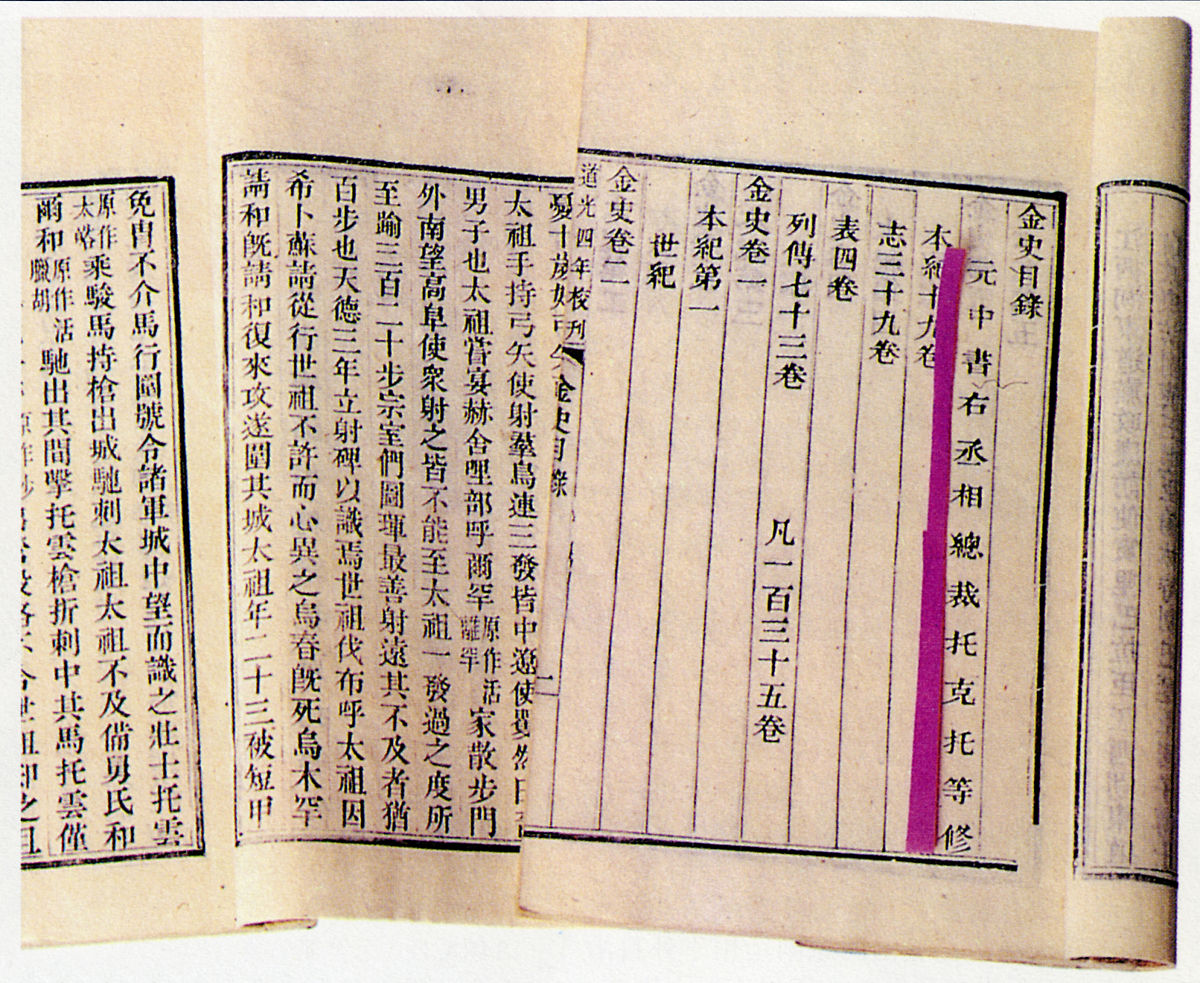 金史目錄
元中書右丞相總裁托克托等修
本紀十九卷
志三十九卷
表四卷
列傳七十三卷 凡一百三十五卷
金史卷一
本紀第一
世紀
金史卷二
道光四年校刊
金史目錄
太祖手持弓矢使射羣鳥連三發皆中遼使
男子也太祖嘗宴赫舍哩部呼爾罕原作活離罕家散步門
外南望高阜使衆射之皆不能至太祖一發過之度所
至踰三百二十步宗室們圖琿最善射遠其不及者猶
百步也天德三年立射碑以識焉世祖伐布呼太祖因
希卜蘇請從行世祖不許而心異之烏春旣死烏木罕
請和旣請和復來攻遂圍其城太祖年二十三被短甲
免冑不介馬行圍號令諸軍城中望而識之壯士托雲
原作太峪乘駿馬持槍出城馳刺太祖太祖不及備舅氏和
爾和原作活臘胡馳出其間擊托雲槍折刺中其馬托雲僅